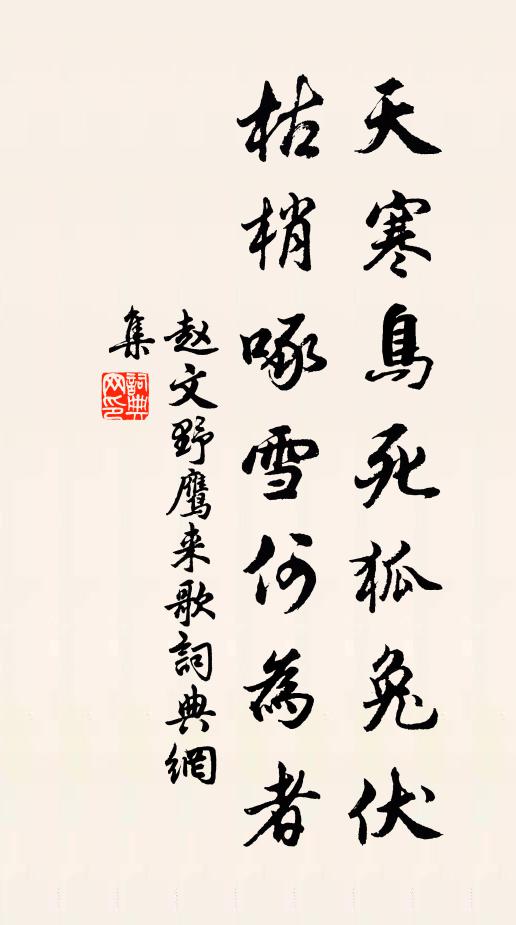 天寒鳥死狐兔伏
枯梢啄雪何為者
赵文野鹰来歌詞典網
集
詞典网印